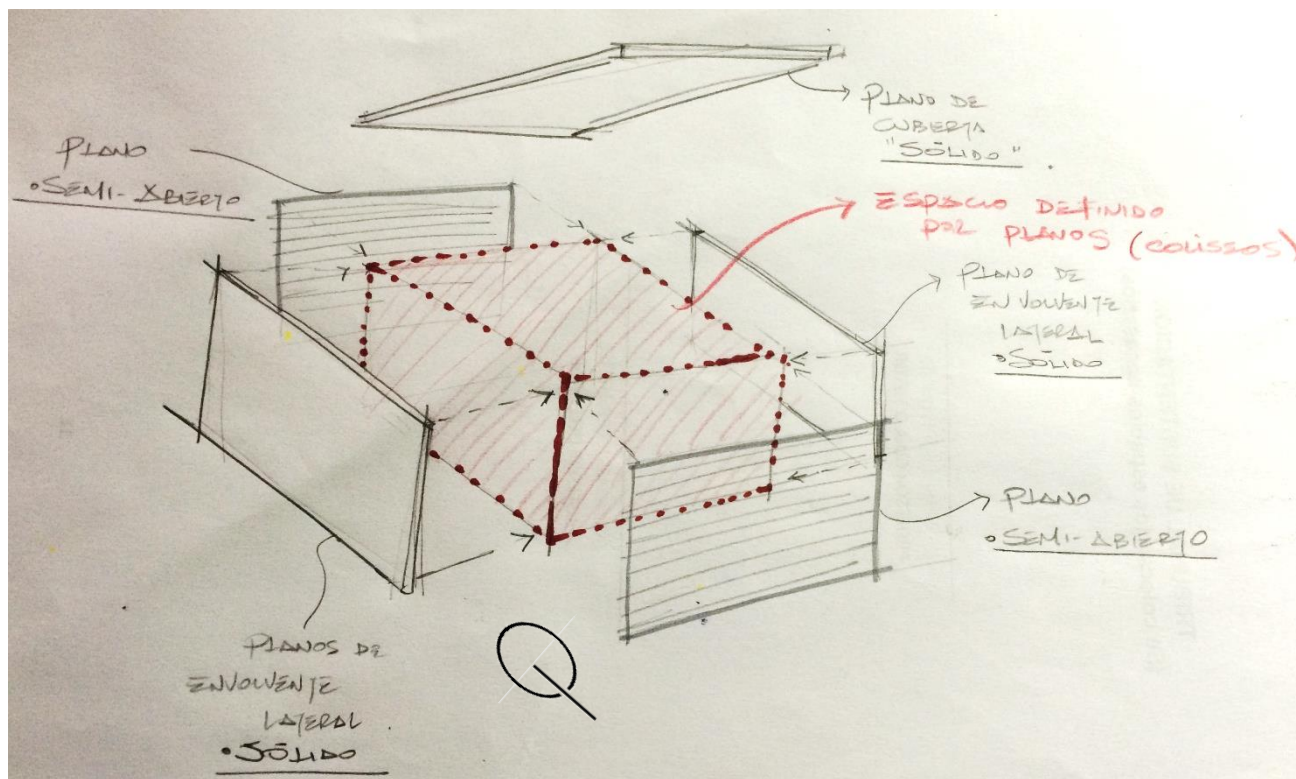 PLANO DE
CUBIERTA
"SÓLIDO".
PLANO
• SEMI-ABIERTO
ESPACIO DEFINIDO
POR PLANOS (COLISEOS)
PLANO DE
ENVOLVENTE
LATERAL
• SÓLIDO
PLANO
• SEMI-ABIERTO
PLANOS DE
ENVOLVENTE
LATERAL.
• SÓLIDO